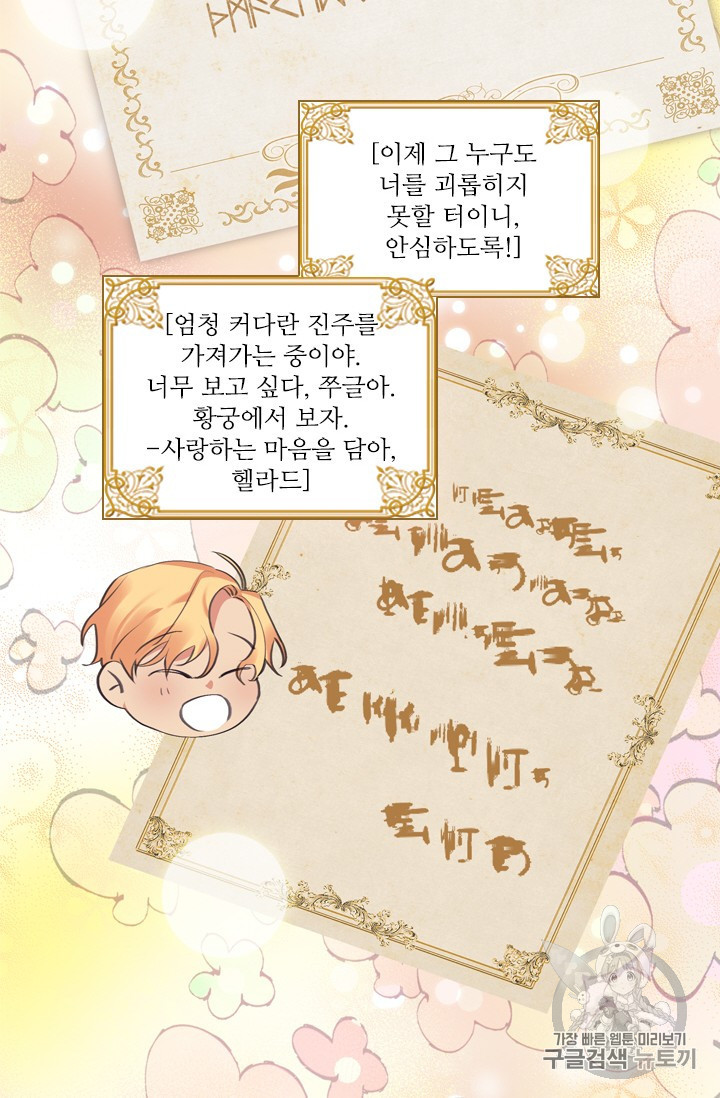 [이제 그 누구도
너를 괴롭히지
못할 터이니,
안심하도록!]
[엄청 커다란 진주를
가져가는 중이야.
너무 보고 싶다, 쭈글아.
황궁에서 보자.
-사랑하는 마음을 담아,
헬라드]
가장 빠른 웹툰 미리보기
구글검색 뉴토끼